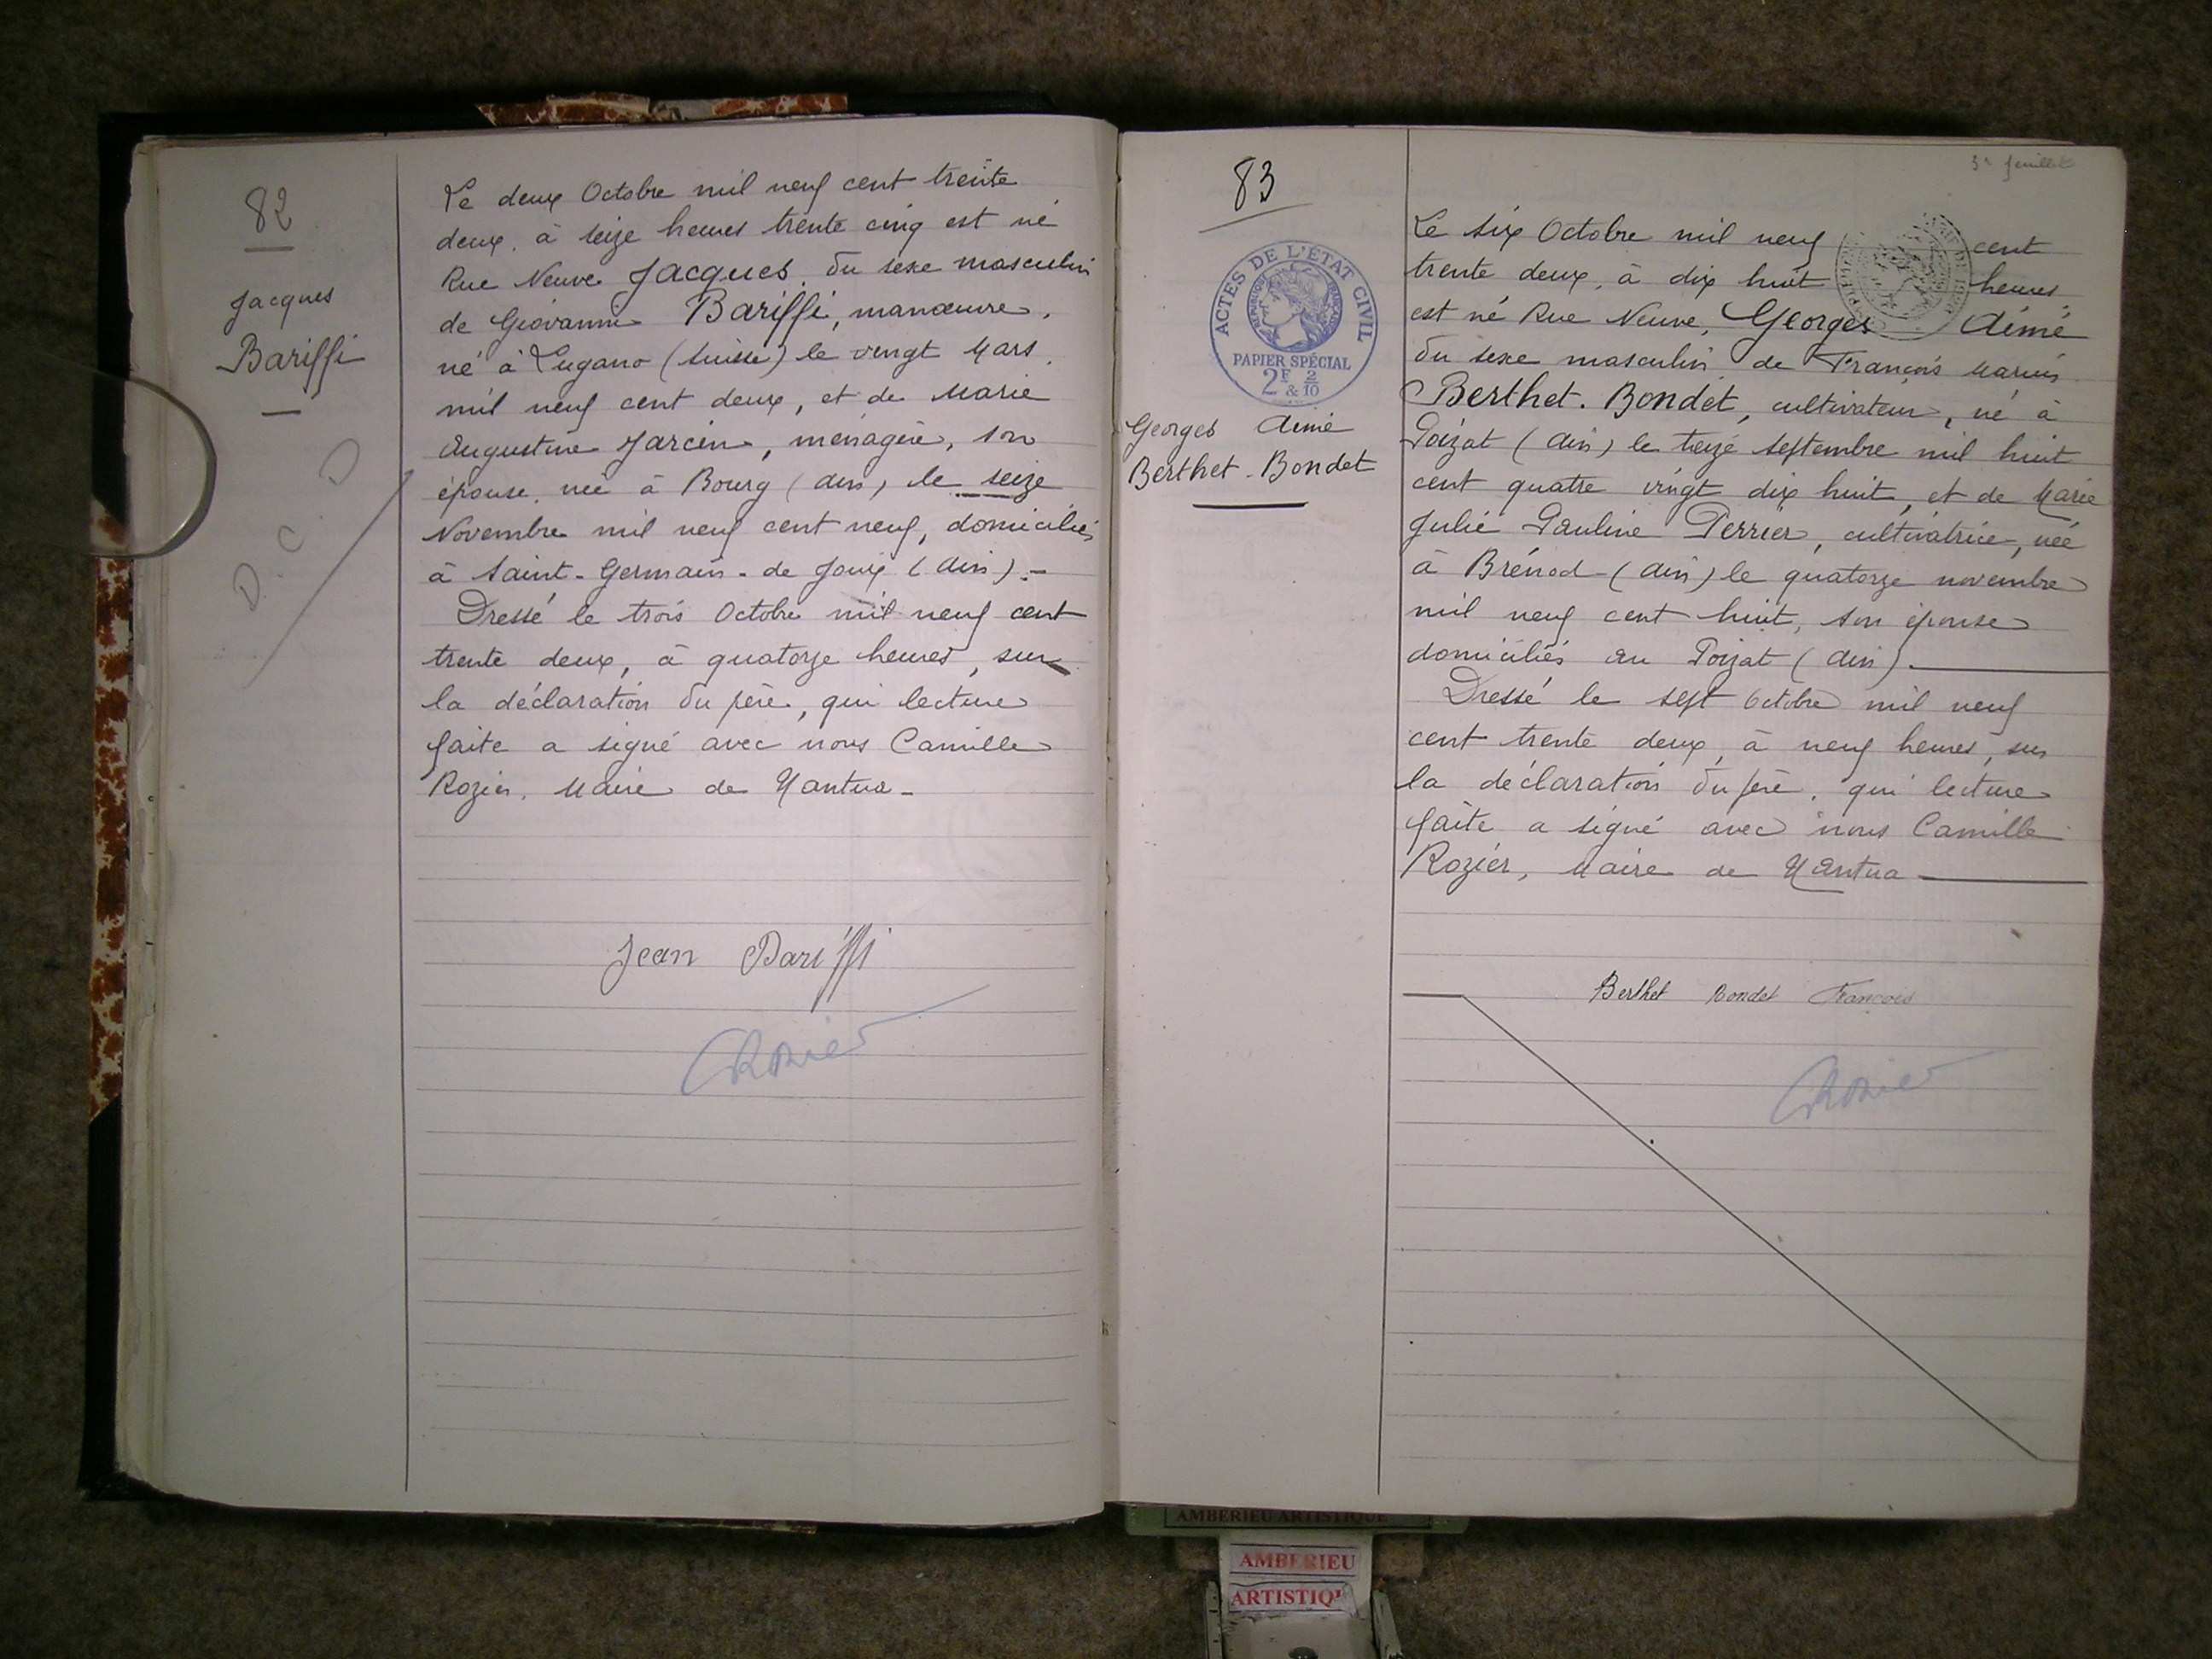 82
Jacques
Bariffi
D.C.D
Le deux Octobre mil neuf cent trente
deux, à seize heures trente cinq est né
Rue Neuve Jacques, du sexe masculin
de Giovanni Bariffi, manœuvre,
né à Lugano (Suisse) le vingt Mars
mil neuf cent deux, et de Marie
Augustine Jarcin, ménagère, son
épouse, née à Bourg (Ain), le seize
Novembre mil neuf cent neuf, domiciliés
à Saint-Germain-de Joux (Ain).-
Dressé le trois Octobre mil neuf cent
trente deux, à quatorze heures, sur
la déclaration du père, qui lecture
faite a signé avec nous Camille
Rozier, Maire de Nantua-
Jean Bariffi
CRozier
83
ACTES DE L'ÉTAT CIVIL
RÉPUBLIQUE FRANÇAISE
PAPIER SPÉCIAL
2F & 2/10
Georges Aimé
Berthet-Bondet
3e feuillet
Le six Octobre mil neuf cent
trente deux, à dix huit heures,
est né Rue Neuve, Georges Aimé
du sexe masculin de François Marius
Berthet-Bondet, cultivateur, né à
Poizat (Ain) le treize septembre mil huit
cent quatre vingt dix huit, et de Marie
Julie Pauline Perrier, cultivatrice, née
à Brénod (Ain) le quatorze novembre
mil neuf cent huit, son épouse
domiciliés au Poizat (Ain).
Dressé le sept Octobre mil neuf
cent trente deux, à neuf heures, sur
la déclaration du père, qui lecture
faite a signé avec nous Camille
Rozier, Maire de Nantua
Berthet Bondet François
CRozier
AMBERIEU ARTISTIQUE
AMBERIEU
ARTISTIQU